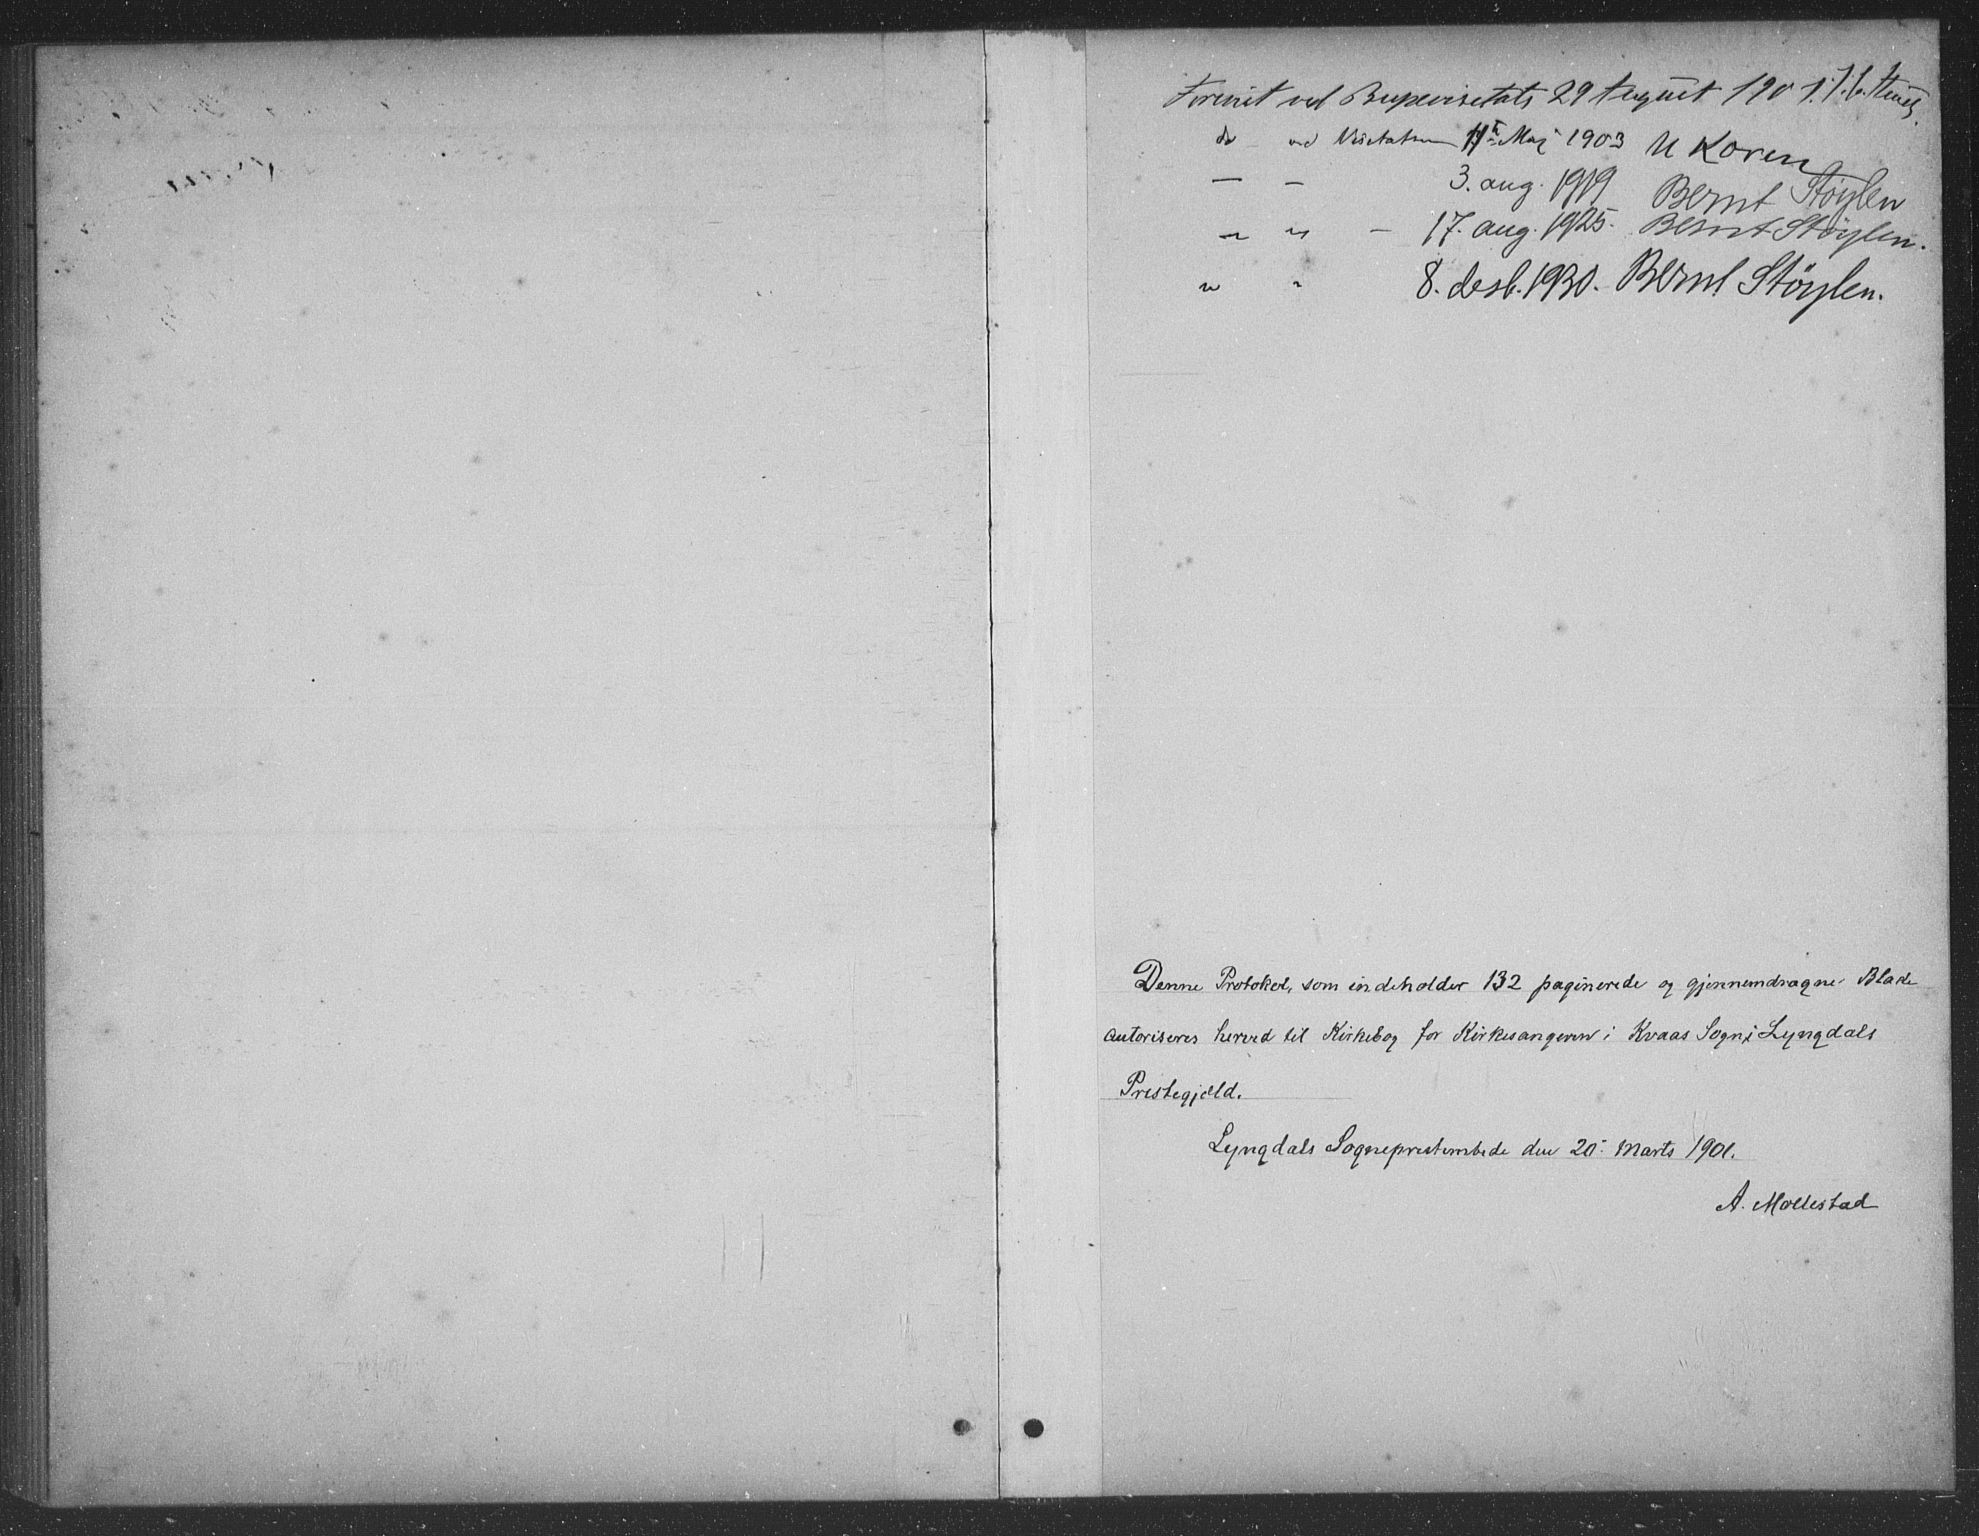 Forevist ved Bispevisitats 29 August 1901. J. C. Heuch.
do ved Visitatsen 11te Maj 1903 U Koren
— — 3. aug. 1919 Bernt Støylen
" " - 17. aug. 1925. Bernt Støylen.
" " 8. desb. 1930. Bernt Støylen.
Denne Protokol, som indeholder 132 paginerede og gjennemdragne Blade
autoriseres herved til Kirkebog for Kirkesangeren i Kvaas Sogn i Lyngdals
Prestegjæld.
Lyngdals Sogneprestembede den 20. Marts 1901.
A. Mollestad